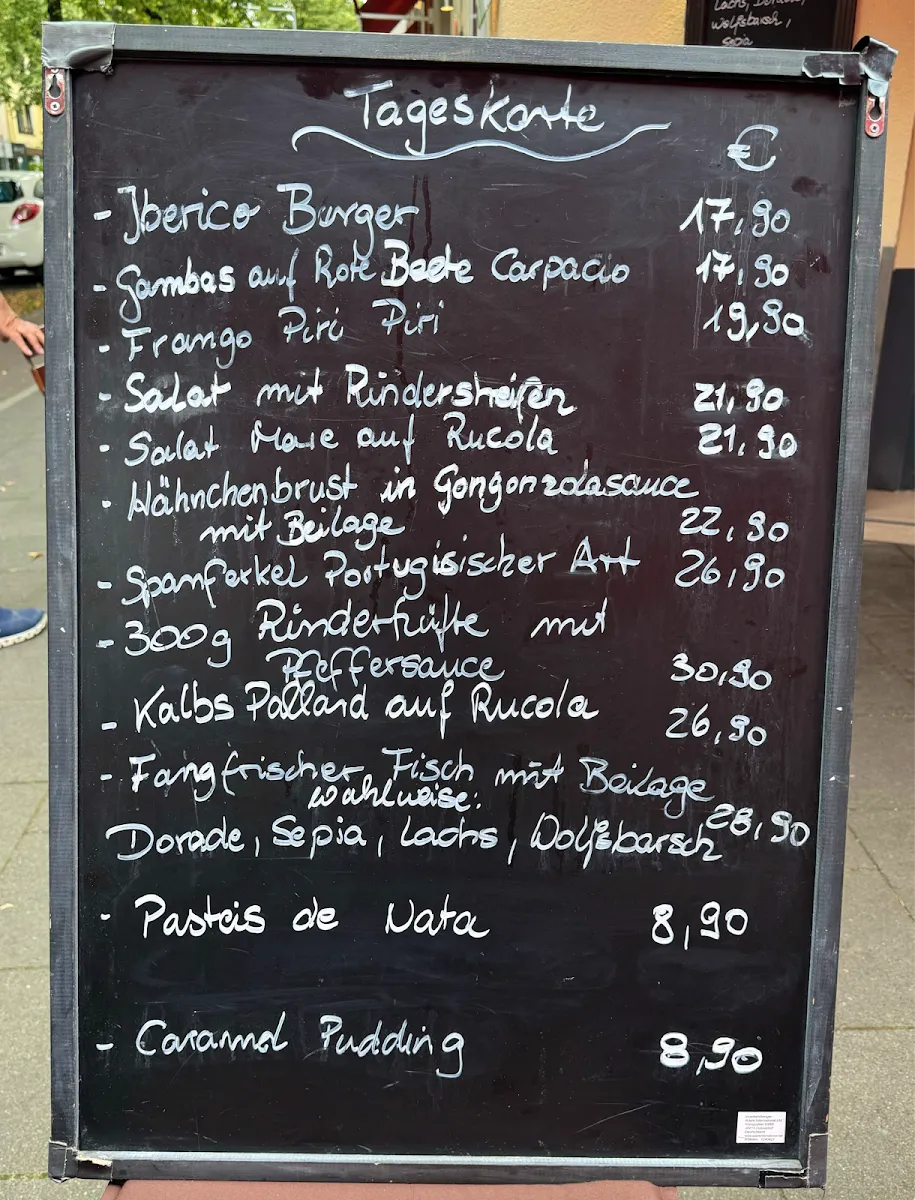 Lachs, Dorade,
Wolfsbarsch,
Sepia
Tageskarte
€
- Iberico Burger 17,90
- Gambas auf Rote Beete Carpacio 17,90
- Frango Piri Piri 19,90
- Salat mit Rindersteifen 21,90
- Salat Mare auf Rucola 21,90
- Hähnchenbrust in Gongonzolasauce
mit Beilage 22,90
- Spanferkel Portugisischer Art 26,90
- 300g Rinderhüfte mit
Pfeffersauce 30,90
- Kalbs Pallard auf Rucola 26,90
- Fangfrischer Fisch mit Beilage
wahlweise: 28,90
Dorade, Sepia, Lachs, Wolfsbarsch
- Pasteis de Nata 8,90
- Caramel Pudding 8,90